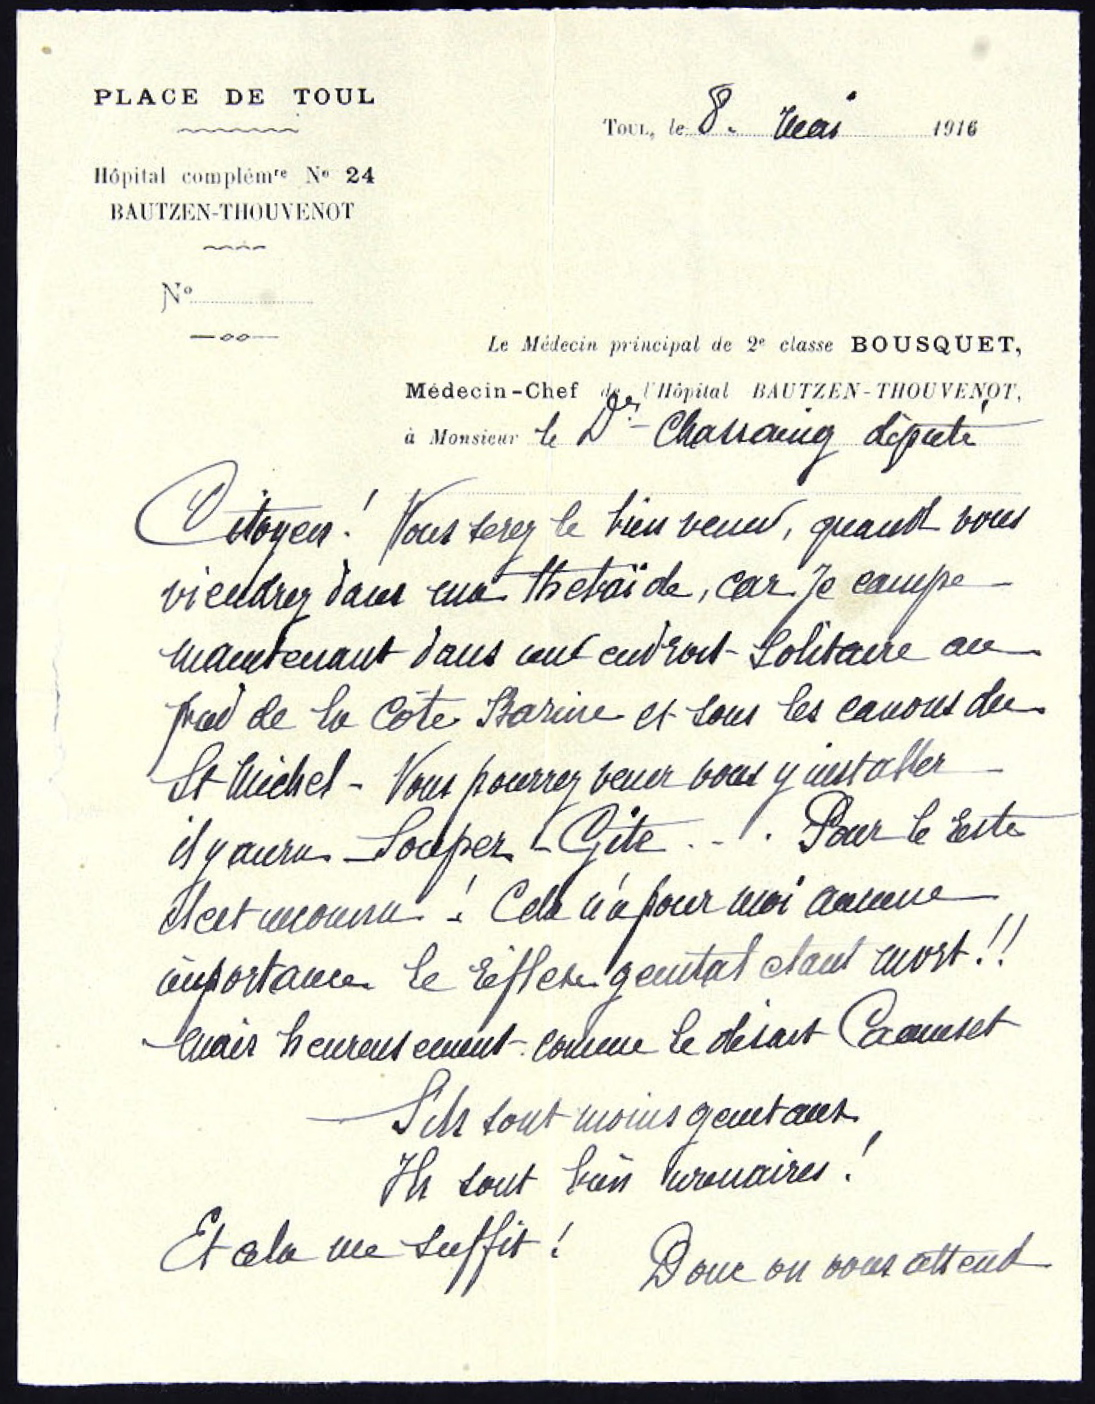 PLACE DE TOUL
Toul, le 8. Mai 1916
Hôpital complémre No 24
BAUTZEN-THOUVENOT
No
Le Médecin principal de 2e classe BOUSQUET,
Médecin-Chef de l'Hôpital BAUTZEN-THOUVENOT,
à Monsieur le Dr Chassaing député
Citoyen! Vous serez le bien venu, quand vous
viendrez dans ma Thebaïde, car je campe
maintenant dans un endroit solitaire au
pied de la Côte Barine et sous les canons du
St Michel - Vous pourrez venir vous y installer
il y aura Souper - Gite - . . Pour le reste
il est inconnu ! Cela n'a pour moi aucune
importance le réflexe genital etant mort!!
Mais heureusement comme le disait Camuset
S'ils sont moins genitaux
Ils sont bien urinaires !
Et cela me suffit !
Donc on vous attend